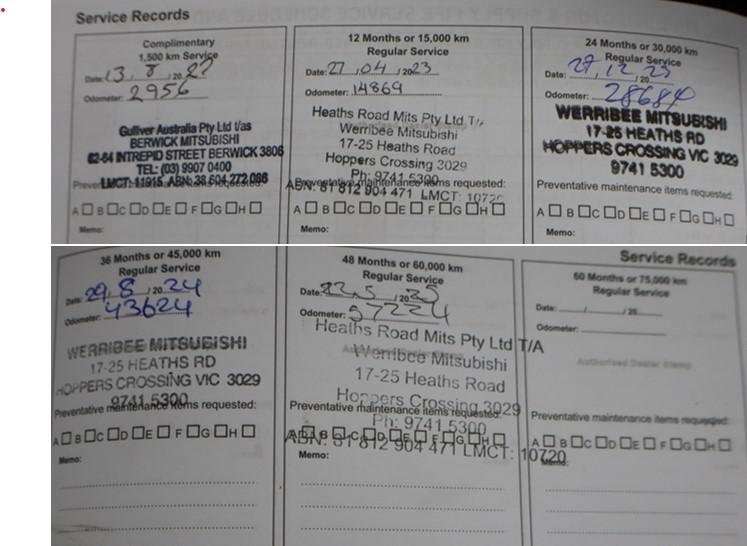 Service Records
Complimentary
1,500 km Service
Date: 13, 8, 2022
Odometer: 2956
Gulliver Australia Pty Ltd t/as
BERWICK MITSUBISHI
62-64 INTREPID STREET BERWICK 3806
TEL: (03) 9907 0400
LMCT: 11915 ABN: 38 604 272 086
A B C D E F G H
Memo:
12 Months or 15,000 km
Regular Service
Date: 27, 04, 2023
Odometer: 14869
Heaths Road Mits Pty Ltd T/A
Werribee Mitsubishi
17-25 Heaths Road
Hoppers Crossing 3029
Ph: 9741 5300
Preventative maintenance items requested:
ABN: 81 812 904 471 LMCT: 10720
A B C D E F G H
Memo:
24 Months or 30,000 km
Regular Service
Date: 27, 12, 2023
Odometer: 28684
WERRIBEE MITSUBISHI
17-25 HEATHS RD
HOPPERS CROSSING VIC 3029
9741 5300
Preventative maintenance items requested:
A B C D E F G H
Memo:
36 Months or 45,000 km
Regular Service
Date: 29, 8, 2024
Odometer: 43624
WERRIBEE MITSUBISHI
17-25 HEATHS RD
HOPPERS CROSSING VIC 3029
9741 5300
Preventative maintenance items requested:
A B C D E F G H
Memo:
48 Months or 60,000 km
Regular Service
Date: 22, 5, 2025
Odometer: 57224
Heaths Road Mits Pty Ltd T/A
Werribee Mitsubishi
17-25 Heaths Road
Hoppers Crossing 3029
Preventative maintenance items requested:
Ph: 9741 5300
A B C D E F G H
ABN: 81 812 904 471 LMCT: 10720
Memo:
Service Records
60 Months or 75,000 km
Regular Service
Date: / / 20
Odometer:
Authorised Dealer Stamp
Preventative maintenance items requested:
A B C D E F G H
Memo: